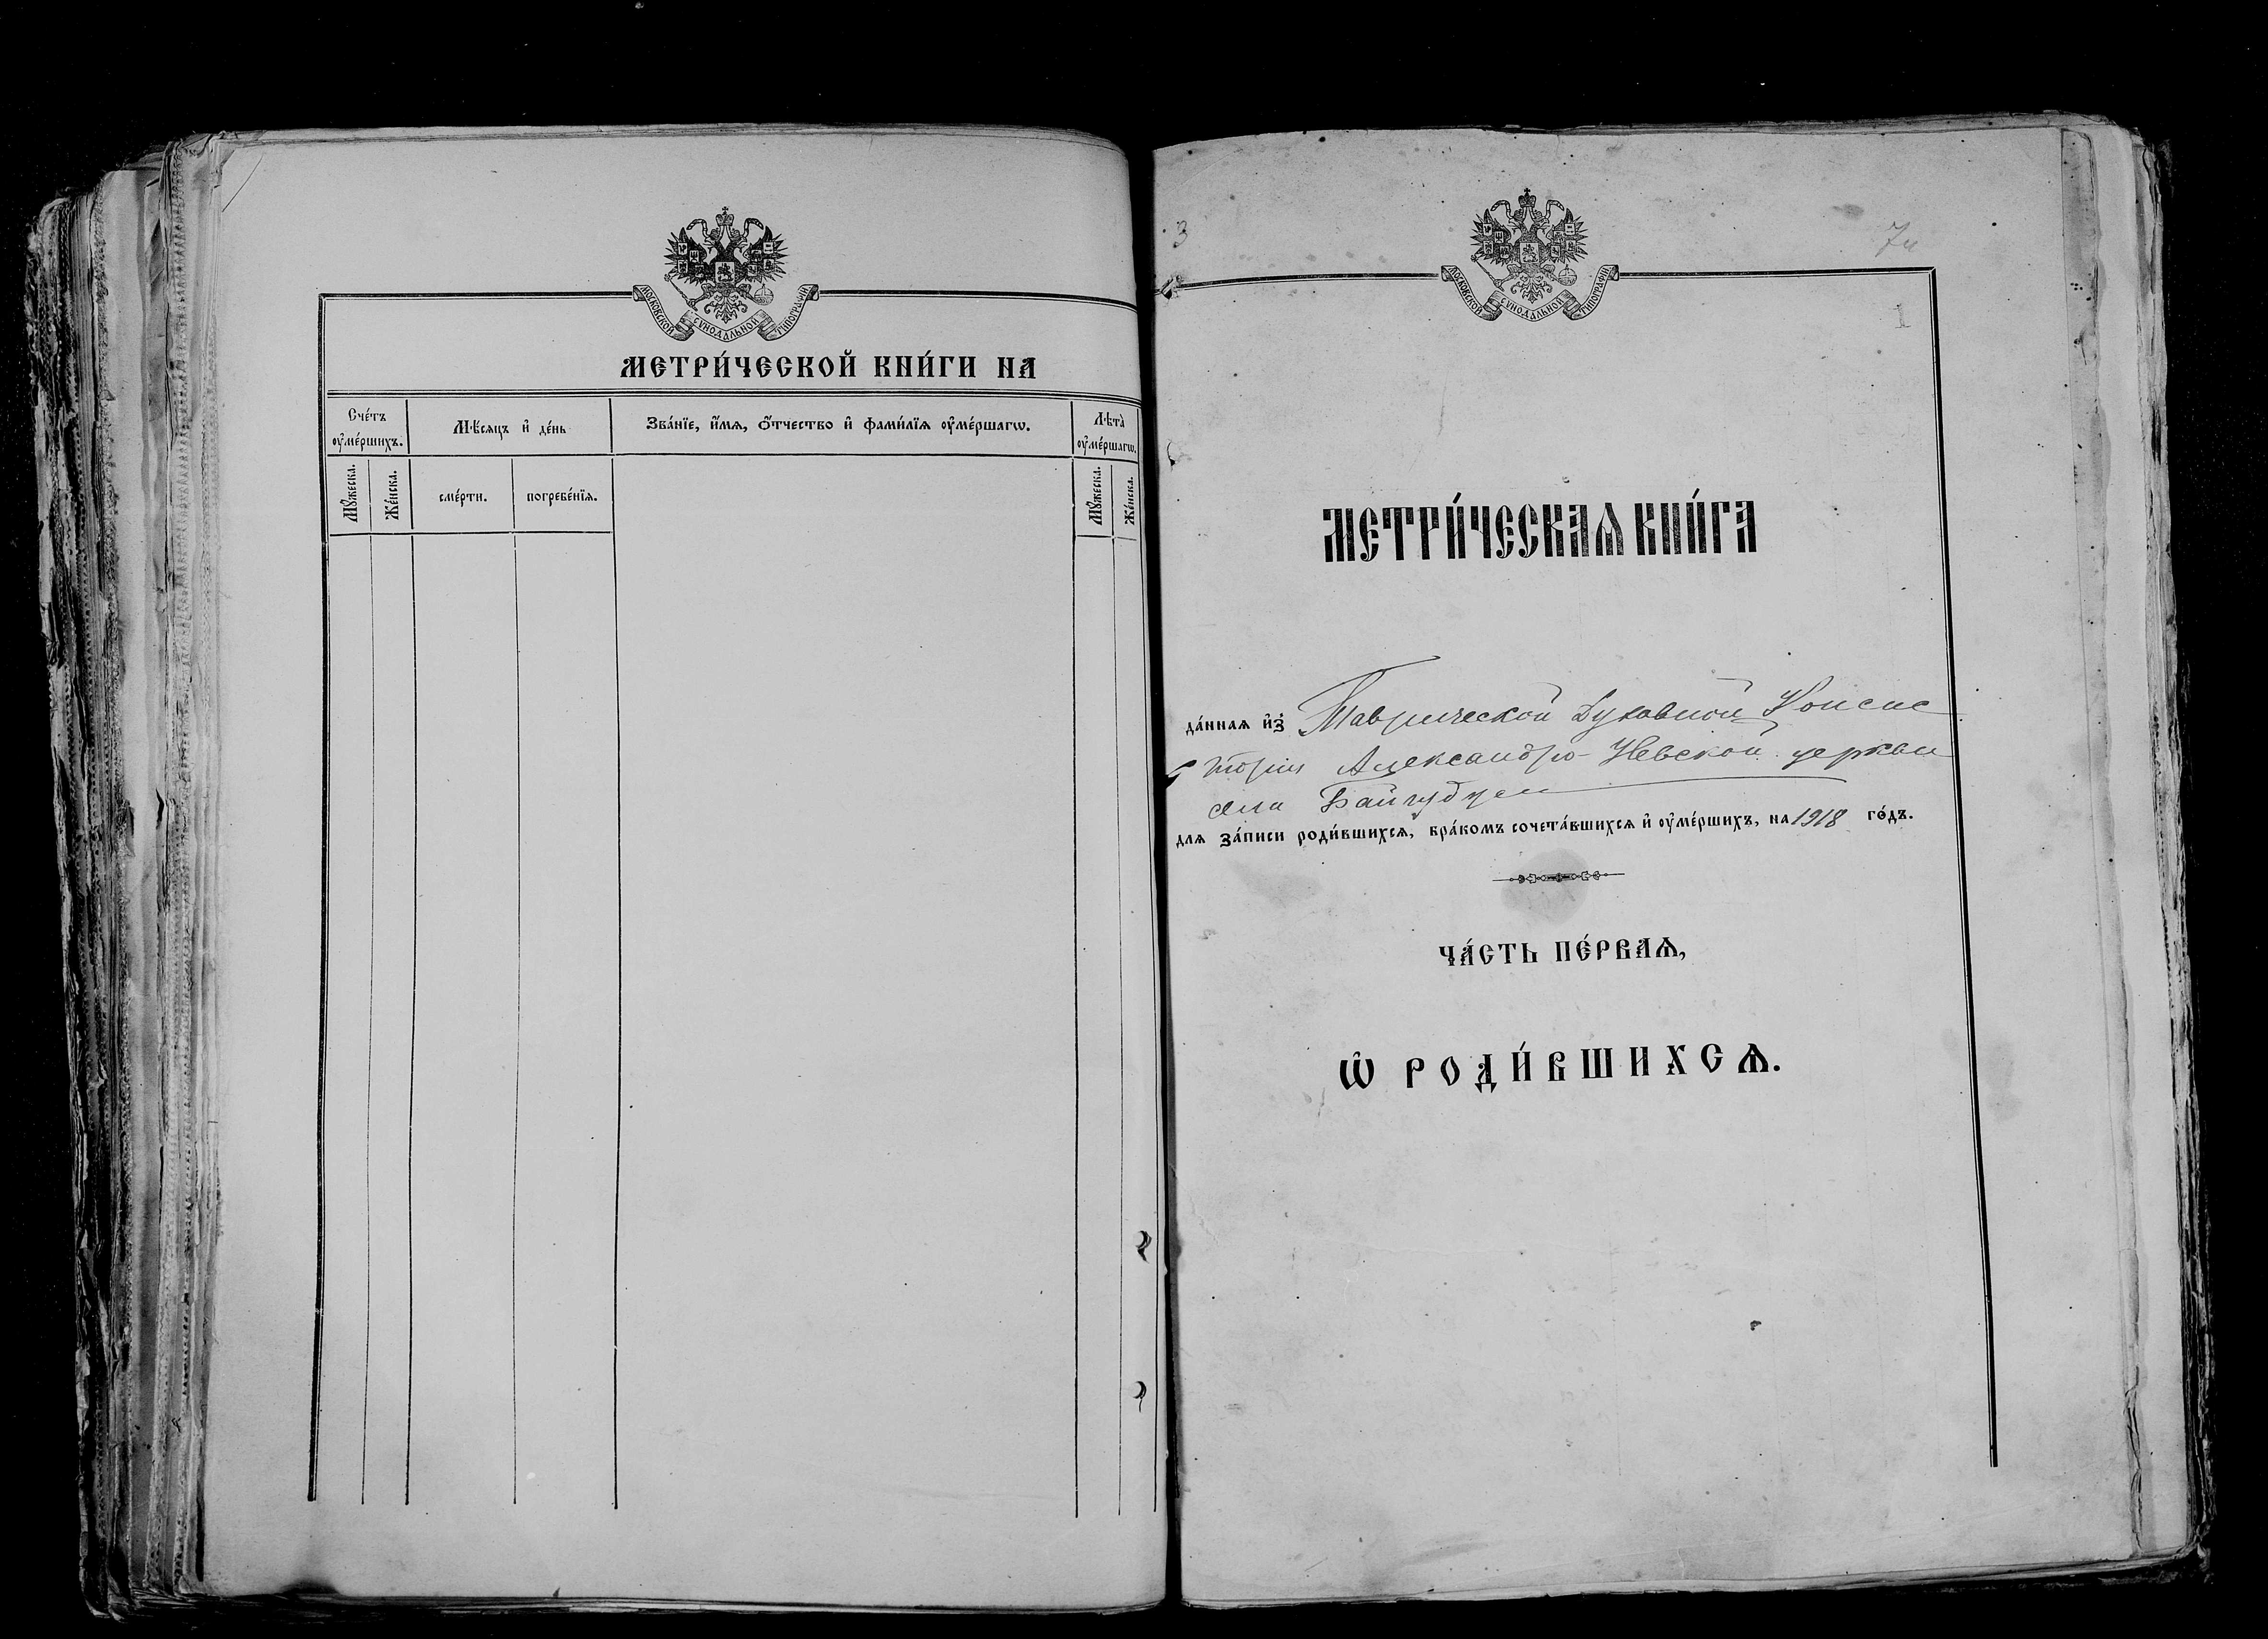 МОСКОВСКОЙ СѴНОДАЛЬНОЙ ТИПОГРАФІИ
МЕТРИ́ЧЕСКОЙ КНИ́ГИ НА
Сче́тъ ᲂу҆ме́ршихъ.
Мѣ́сяцъ и҆ де́нь
Зва́нїе, и҆́мѧ, ѻ҆́тчество и҆ фами́лїѧ ᲂу҆ме́ршагѡ.
Лѣта̀ ᲂу҆ме́ршагѡ.
Мꙋ́жеска.
Же́нска.
сме́рти.
погребе́нїѧ.
Мꙋ́жеска.
Же́нска.
3
МОСКОВСКОЙ СѴНОДАЛЬНОЙ ТИПОГРАФІИ
1
МЕТРИ́ЧЕСКАѦ КНИ́ГА
да́ннаѧ и҆з̾ Таврической Духовной Консис
торіи Александро-Невской церкви
села
длѧ за́писи роди́вшихсѧ, бра́комъ сочета́вшихсѧ и҆ ᲂу҆ме́ршихъ, на 1918 го́дъ.
ЧА́СТЬ ПЕ́РВАѦ,
Ѡ҆ РОДИ́ВШИХСѦ.